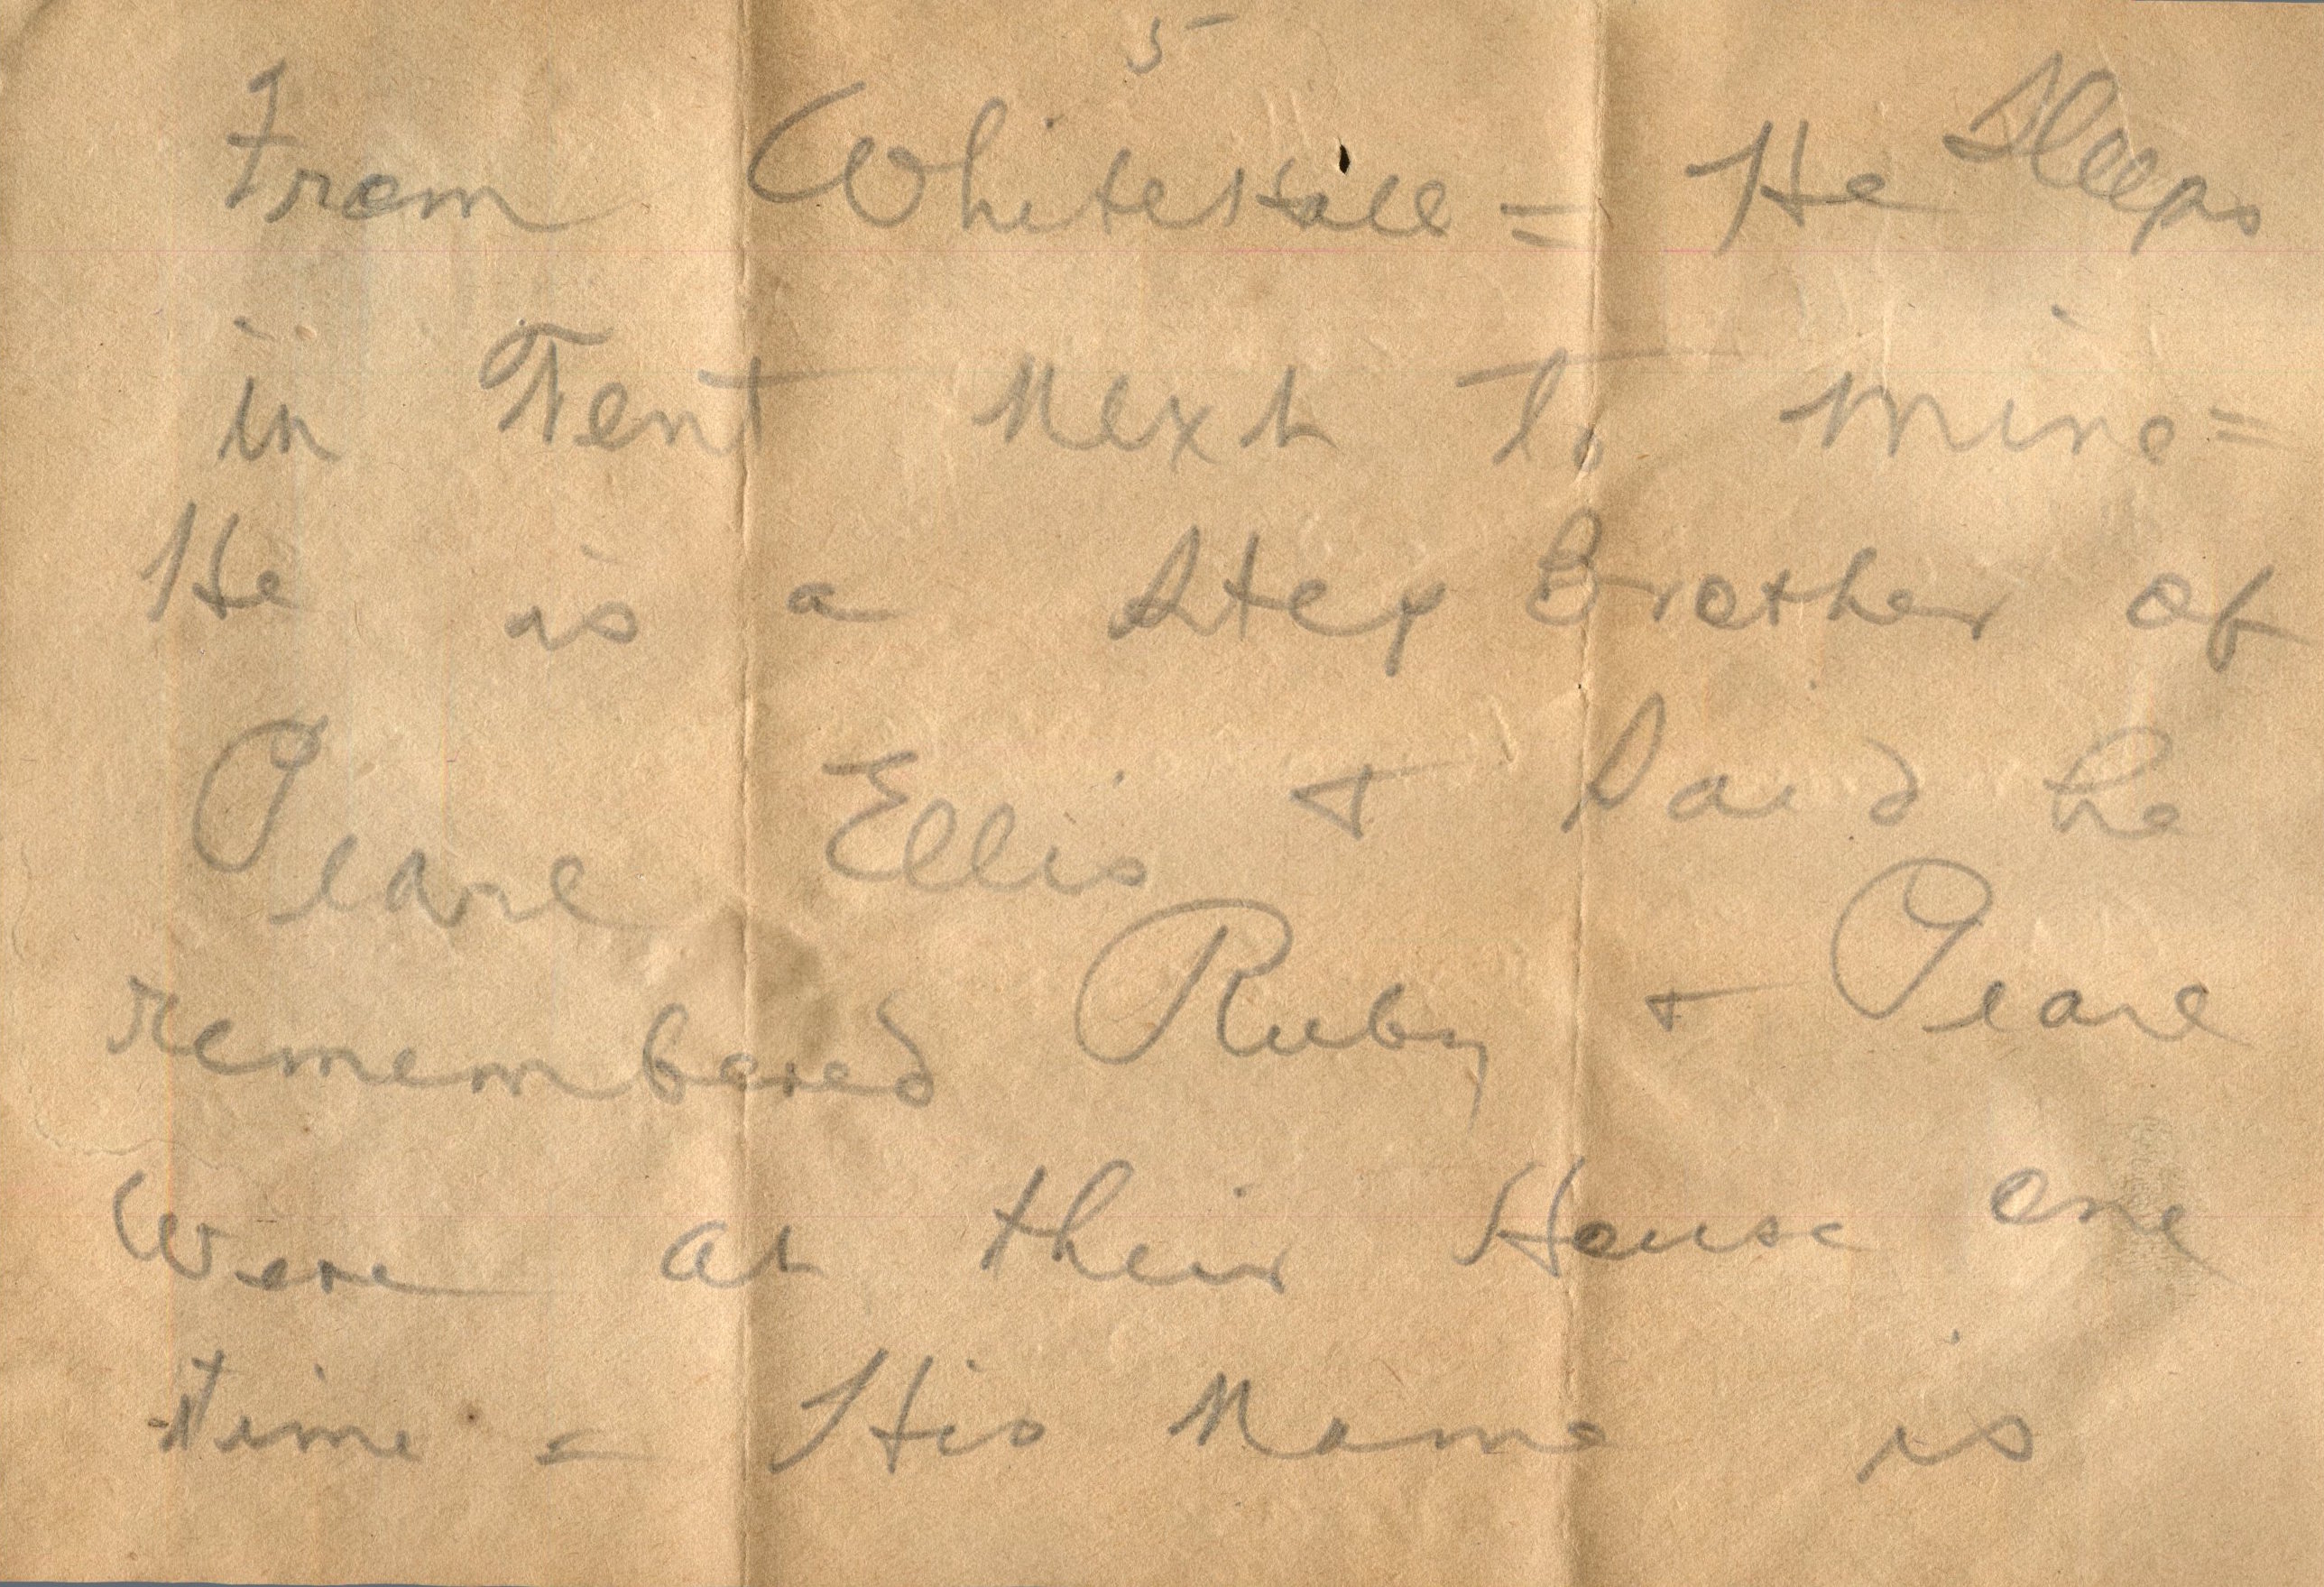 5
From WhiteHall = He Sleeps
in Tent Next To Mine =
He is a Step Brother of
Pearl Ellis + Said he
remembered Ruby + Pearl
Were at their House one
time = His Name is